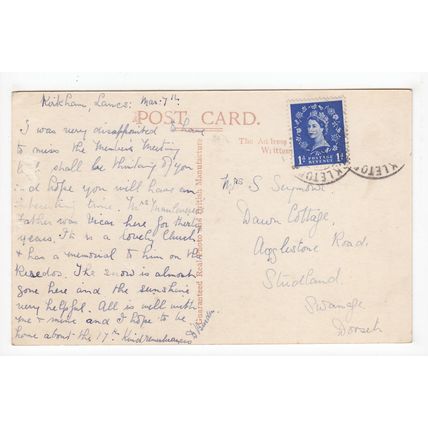 Kirkham, Lancs: Mar. 7th
POST CARD.
I was very disappointed to have
to miss the Members Meeting
but I shall be thinking of you
and hope you will have an
interesting time.
Father was Vicar here for thirty
years. It is a lovely Church
& has a memorial to him on the
Reredos. The snow is almost
gone here and the sunshine
very helpful. All is well with
me & mine and I hope to be
home about the 17th Kind remembrances
Guaranteed Real Photo British Manufacture
The Address
Written
POSTAGE
REVENUE
1D 1D
KLETO
Mrs S Seymour
Dawn Cottage,
Agglestone Road,
Studland,
Swanage
Dorset